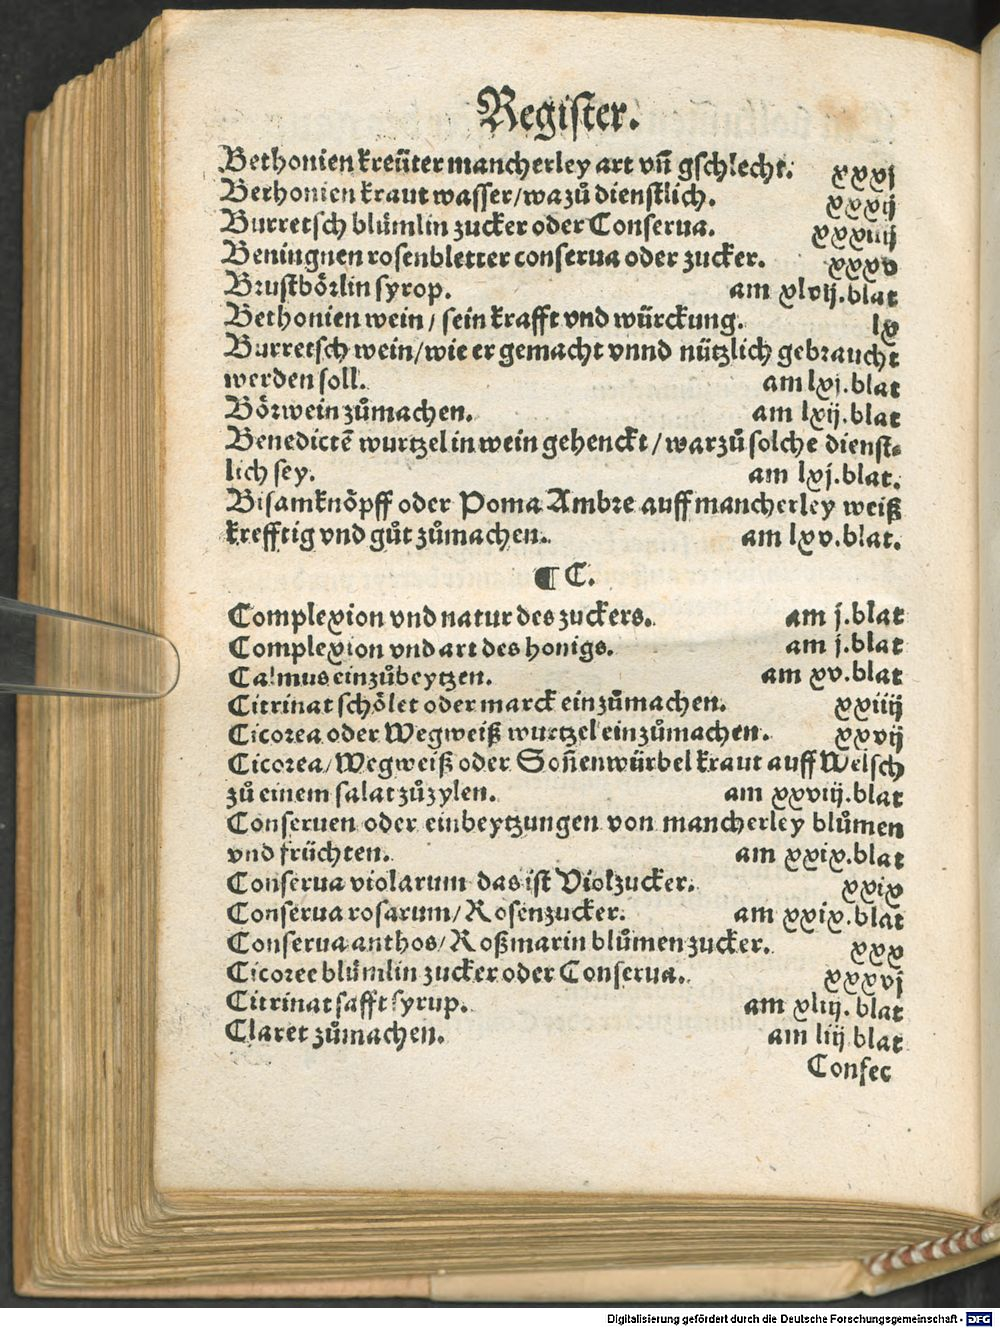 Register.
Bethonien kreüter mancherley art vn̄ gschlecht. xxxj
Bethonien kraut wasser/wazů dienstlich. xxxij
Burretsch blůmlin zucker oder Conserua. xxxiiij
Beningnen rosenbletter conserua oder zucker. xxxv
Brustbörlin syrop. am xlvij.blat
Bethonien wein/ sein krafft vnd würckung. lx
Burretsch wein/wie er gemacht vnnd nützlich gebraucht
werden soll. am lxj.blat
Börwein zůmachen. am lxij.blat
Benedictē wurtzel in wein gehenckt/warzů solche dienst-
lich sey. am lxj.blat.
Bisamknöpff oder Poma Ambre auff mancherley weiß
krefftig vnd gůt zůmachen. am lxv.blat.
¶ C.
Complexion vnd natur des zuckers. am j.blat
Complexion vnd art des honigs. am j.blat
Calmus einzůbeytzen. am xv.blat
Citrinat schölet oder marck einzůmachen. xxiiij
Cicorea oder Wegweiß wurtzel einzůmachen. xxvij
Cicorea/Wegweiß oder Son̄enwürbel kraut auff Welsch
zů einem salat zůzylen. am xxviij.blat
Conseruen oder einbeytzungen von mancherley blůmen
vnd früchten. am xxix.blat
Conserua violarum das ist Violzucker. xxix
Conserua rosarum/Rosenzucker. am xxix.blat
Conserua anthos/Roßmarin blůmenzucker. xxx
Cicoree blůmlin zucker oder Conserua. xxxvj
Citrinat safft syrup. am xliij.blat
Claret zůmachen. am liij blat
Confec
Digitalisierung gefördert durch die Deutsche Forschungsgemeinschaft - DFG